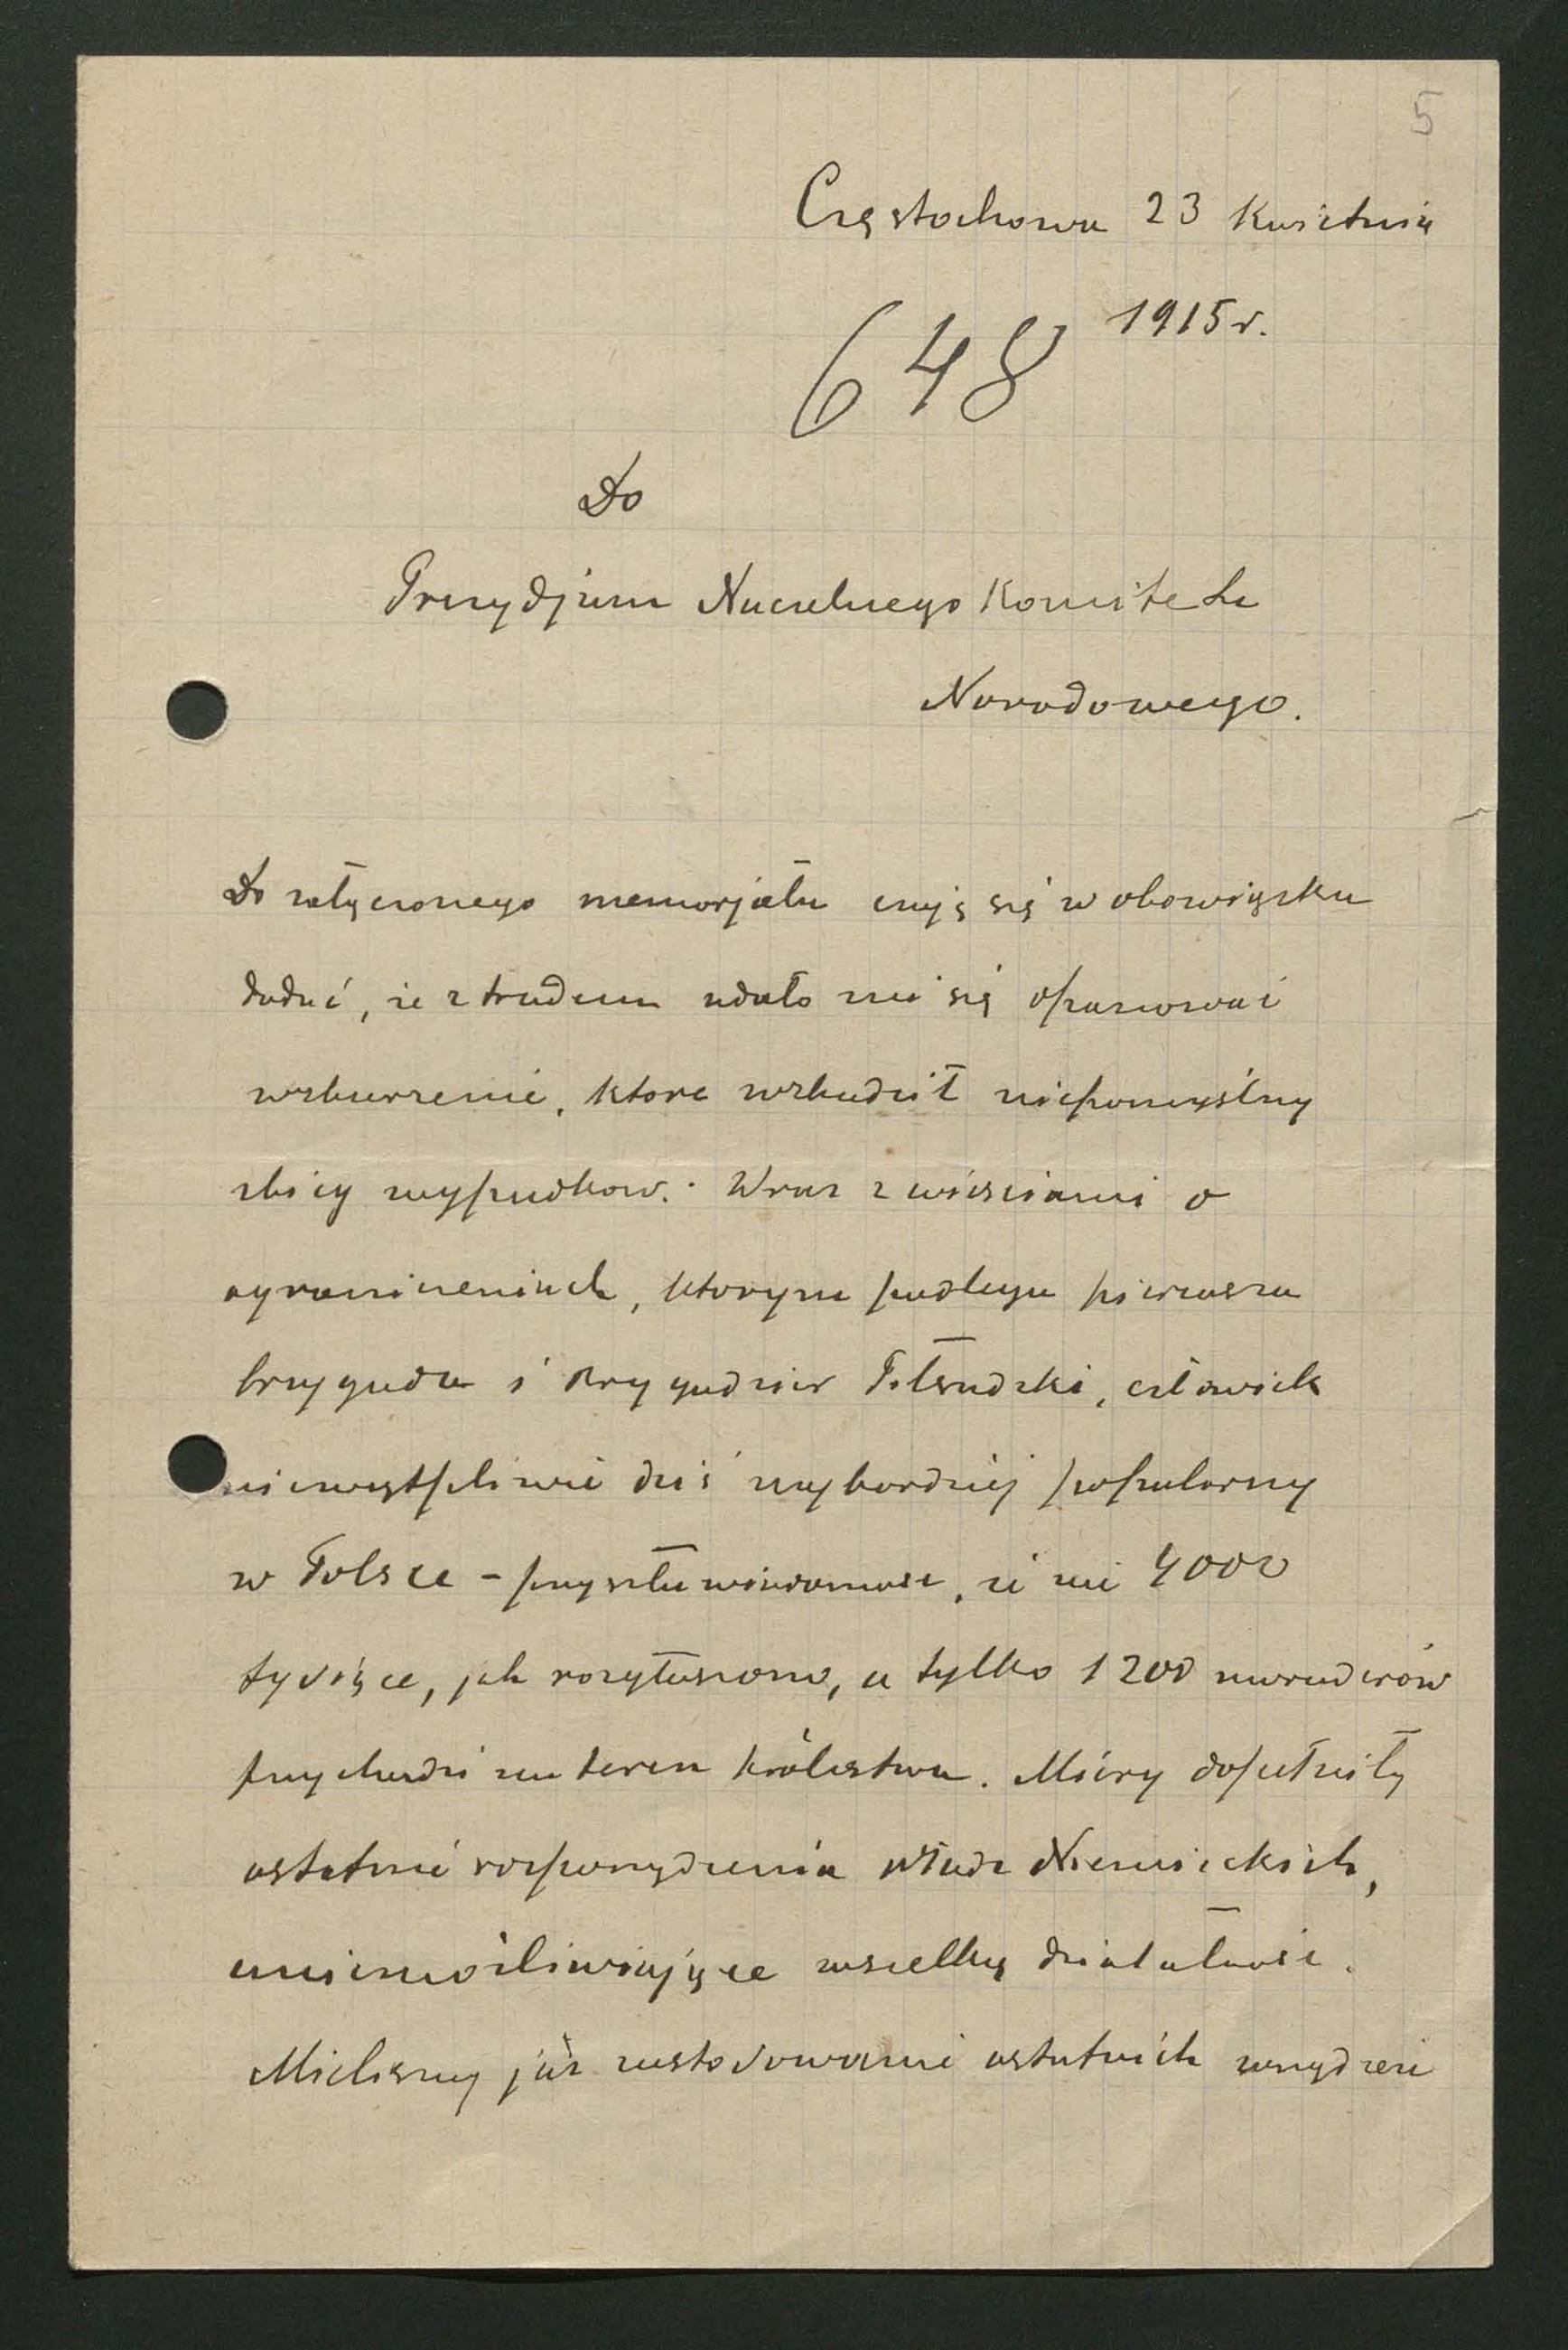 5
Częstochowa 23 Kwietnia
1915 r.
648
Do
Prezydjum Naczelnego Komitetu
Narodowego.
Do załączonego memorjału czuję się w obowiązku
dodać, że z trudem udało mi się opanować
wzburzenie, które wzbudził niepomyślny
zbieg wypadków. Wraz z wieściami o
ograniczeniach, którym podlega pierwsza
brygada i Brygadzier Piłsudzki, człowiek
niewątpliwie dziś najbardziej popularny
w Polsce – przyszła wiadomość, że nie 4000
tysiące, jak rozgłaszono, a tylko 1200
przychodzi na teren królestwa. Miary dopełniły
ostatnie rozporządzenia władz Niemieckich,
uniemożliwiające wszelką działalność.
Mieliśmy już zastosowanie ostatnich